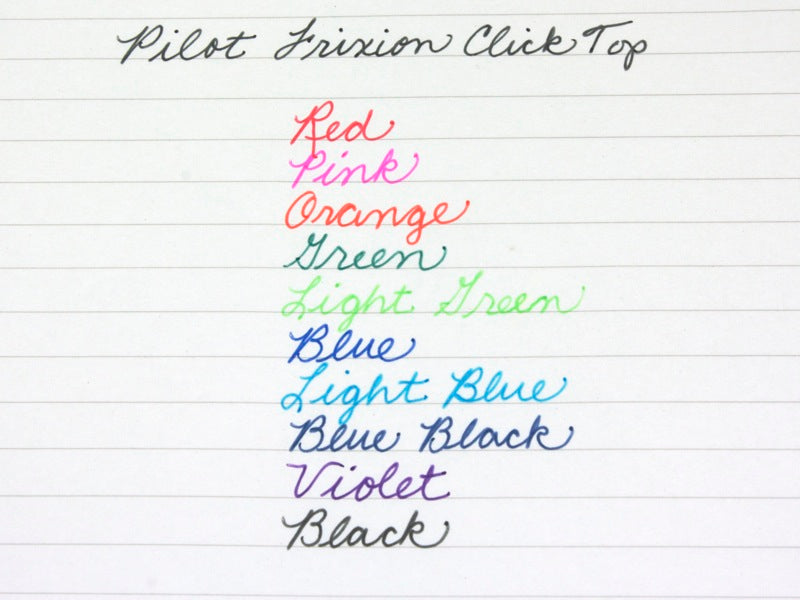 Pilot Frixion Click Top
Red
Pink
Orange
Green
Light Green
Blue
Light Blue
Blue Black
Violet
Black